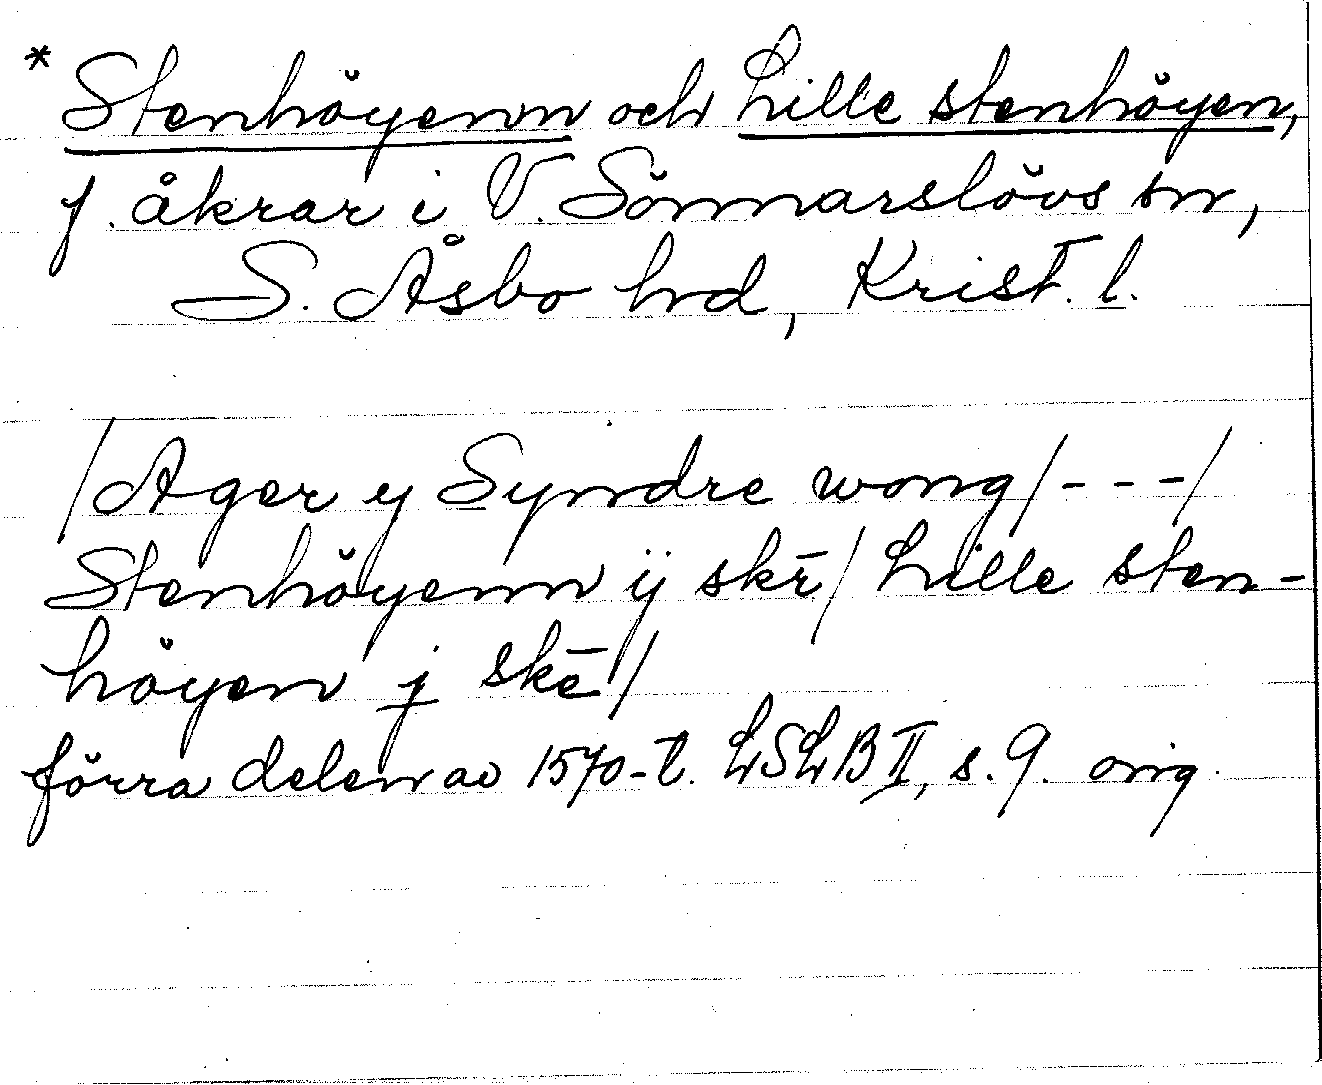 * Stenhöyenn och Lille stenhöyen,
f. åkrar i V. Sönnarslövs sn,
S. Åsbo hd, Krist. l.
/Ager y Syndre wong/---/
Stenhöyenn ij skē/ Lille sten-
höyen j skē/
förra delen av 1570-t. LSLB II, s. 9. orig.